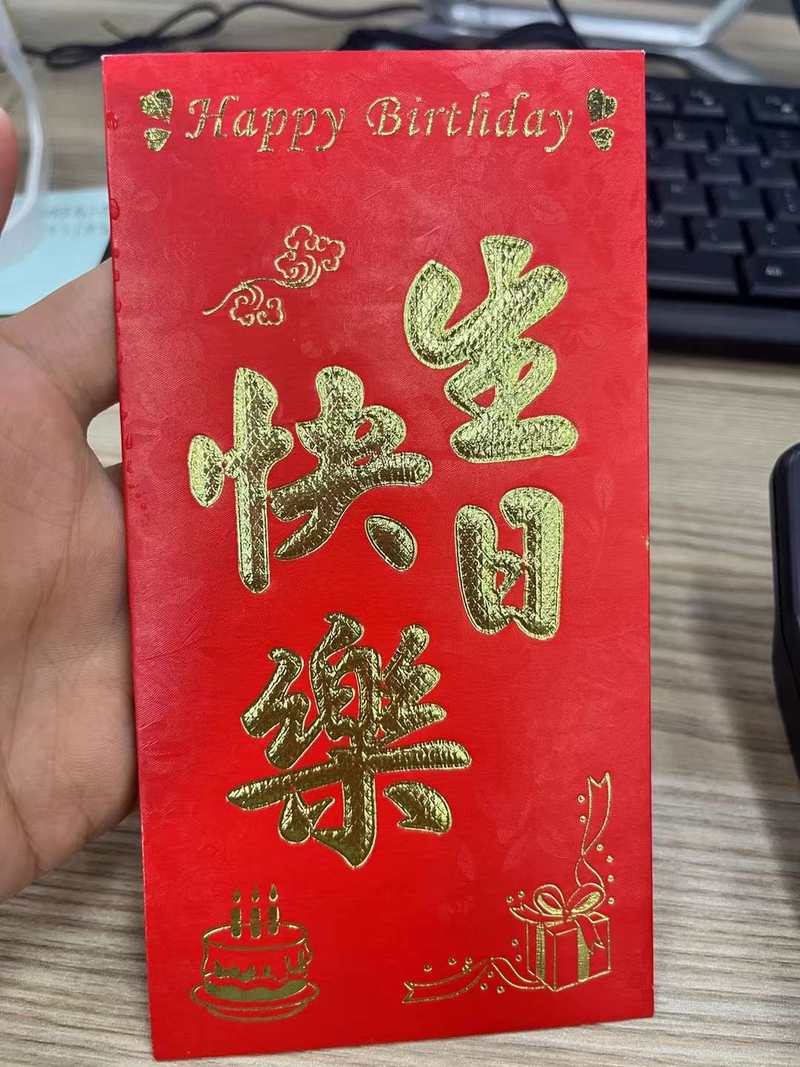 Happy Birthday
生日
快樂